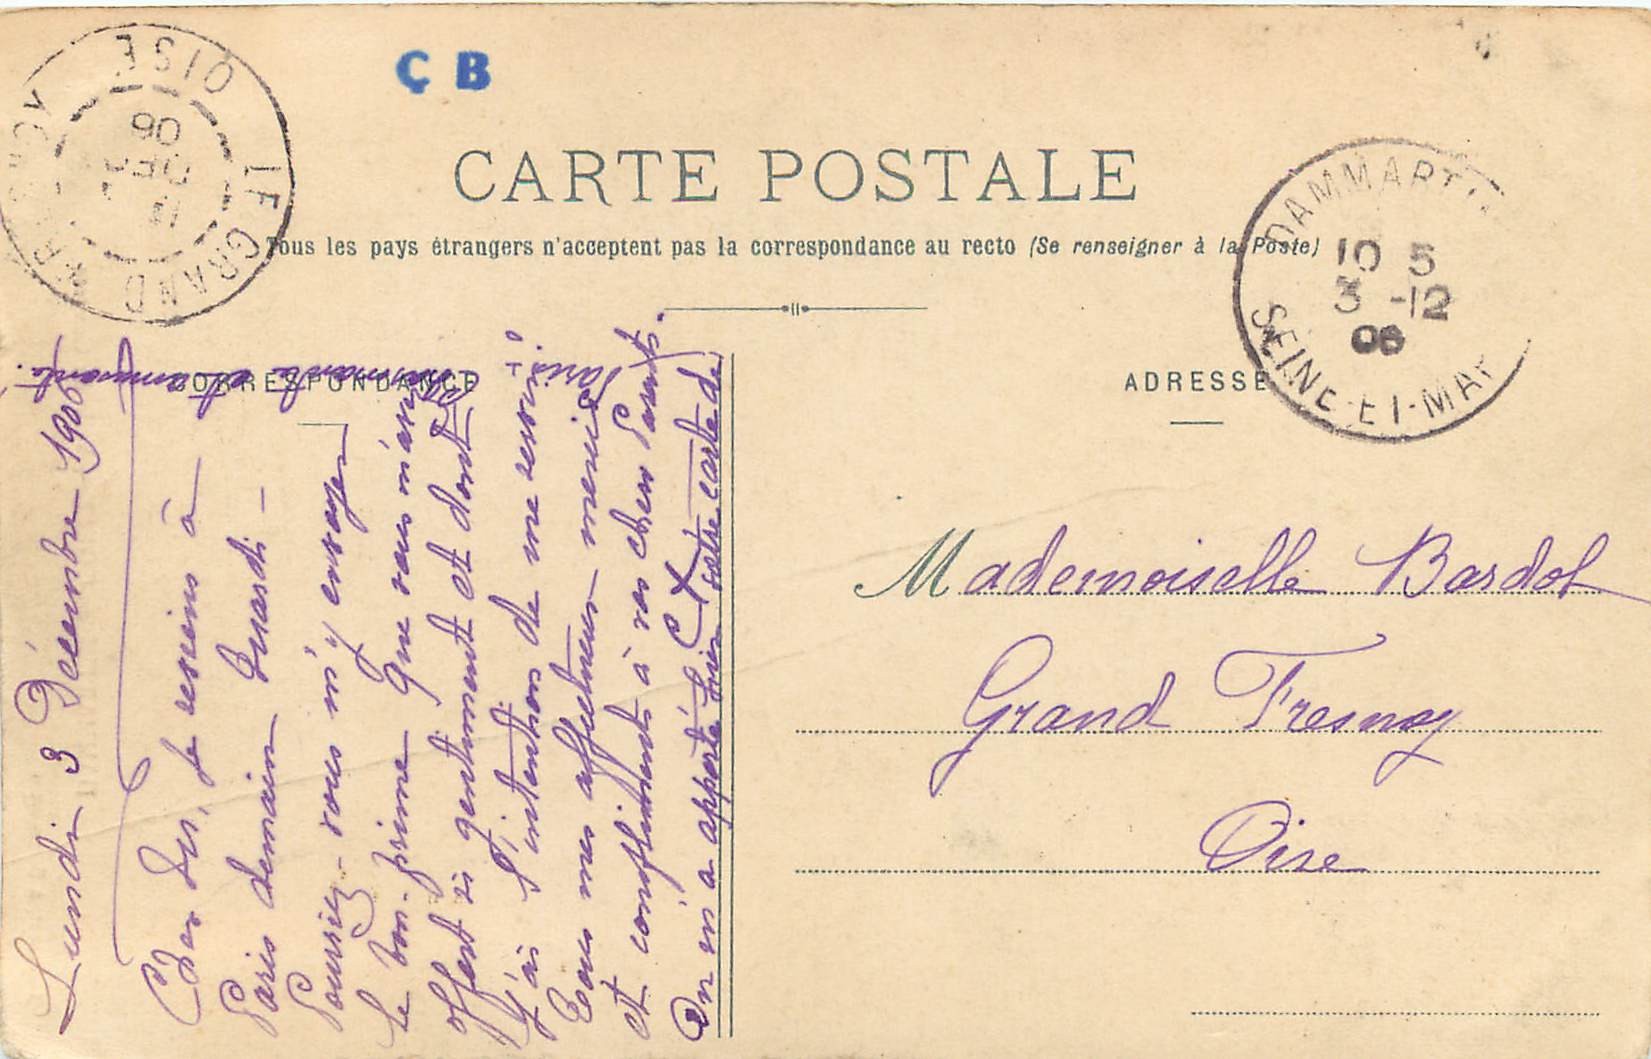 Ç B
CARTE POSTALE
Tous les pays étrangers n'acceptent pas la correspondance au recto (Se renseigner à la Poste)
CORRESPONDANCE
ADRESSE
OISE
LE GRAND FRESNOY
DEC
06
DAMMARTIN
10 5
3 -12
06
SEINE-ET-MAR
Lundi 3 Décembre 1906
je reviens à
Paris demain Mardi -
Pourriez-vous m'y envoyer
le bon-prime que vous m'avez
offert si gentiment et dont
j'ai l'intention de me servir
Tous mes affectueux mercis
et compliments à vos chers Parents.
On m'a apporté hier votre carte de
Paris
charmante et amusante.
Mademoiselle Bardol
Grand Fresnoy
Oise